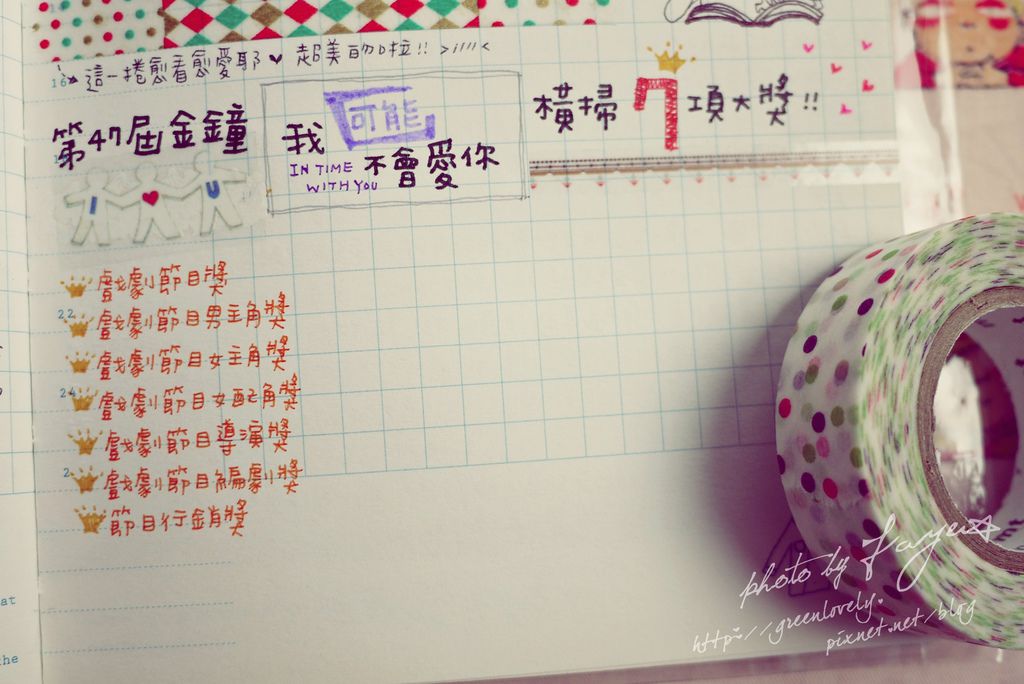 這一捲愈看愈愛耶♥ 超美的啦!! >////<
第47屆金鐘
我可能不會愛你
IN TIME WITH YOU
橫掃7項大獎!!
戲劇節目獎
戲劇節目男主角獎
戲劇節目女主角獎
戲劇節目女配角獎
戲劇節目導演獎
戲劇節目編劇獎
節目行銷獎
16
22
24
2
at
the
mt
photo by Faye☆
http://greenlovely.
pixnet.net/blog